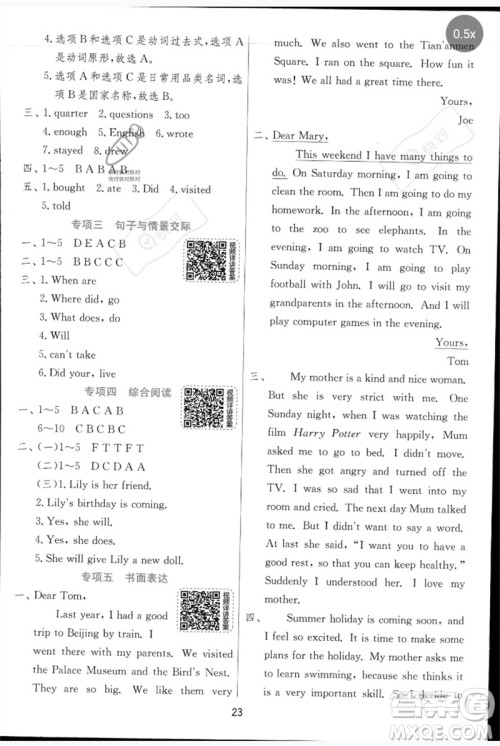 0.5x
4. 选项 B 是动词过去式,选项 A
是动词原形,故选 A。
5. 选项 A 和 C 是日常用品类名词,选项
B 是国家名称,故选 B。
三、1. quarter 2. questions 3. too
4. enough 5. English 6. wrote
7. stayed 8. drew
四、1~5 BABAB
五、1. bought 2. ate 3. Did 4. visited
5. told
专项三 句子与情景交际
一、1~5 DEACB
二、1~5 BBCCC
三、1. When are
2. Where did, go
3. What does, do
4. Will
5. can't take
6. Did your, live
专项四 综合阅读
一、1~5 BACAB
6~10 CBCBC
二、(一)1~5 FTTFT
(二)1~5 DCDAA
(三)1. Lily is her friend.
2. Lily's birthday is coming.
3. Yes, she will.
4. Yes, she does.
5. She will give Lily a new doll.
专项五 书面表达
一、Dear Tom,
Last year, I had a good
trip to Beijing by train. I
went there with my family. We visited
the Palace Museum and the Bird's Nest.
They are so big. We like them very
much. We also went to the Tian'anmen
Square. I ran on the square. How fun it
was! We all had a great time there.
Yours,
Joe
二、Dear Mary,
This weekend I have many things to
do. On Saturday morning, I am going to
clean the room. Then I am going to do my
homework. In the afternoon, I am going
to the zoo to see elephants. In the
evening, I am going to watch TV. On
Sunday morning, I am going to play
football with John. I will go to visit my
grandparents in the afternoon. And I will
play computer games in the evening.
Yours,
Tom
三、My mother is a kind and nice woman.
But she is very strict with me. One
Sunday night, when I was watching the
film Harry Potter at midnight, Mum
asked me to go to bed. But I didn't.
Then she got angry and turned off the
TV. I was so sad and I went to my room
and cried. The next day Mum didn't
At last she said, "
good rest, so we can be healthy."
Suddenly I understood her. I love my
mother.
四、Summer holiday is coming. I am
feeling so excited. My mother asks me to
learn swimming, because she thinks it
is a very important skill. So I decide to
23